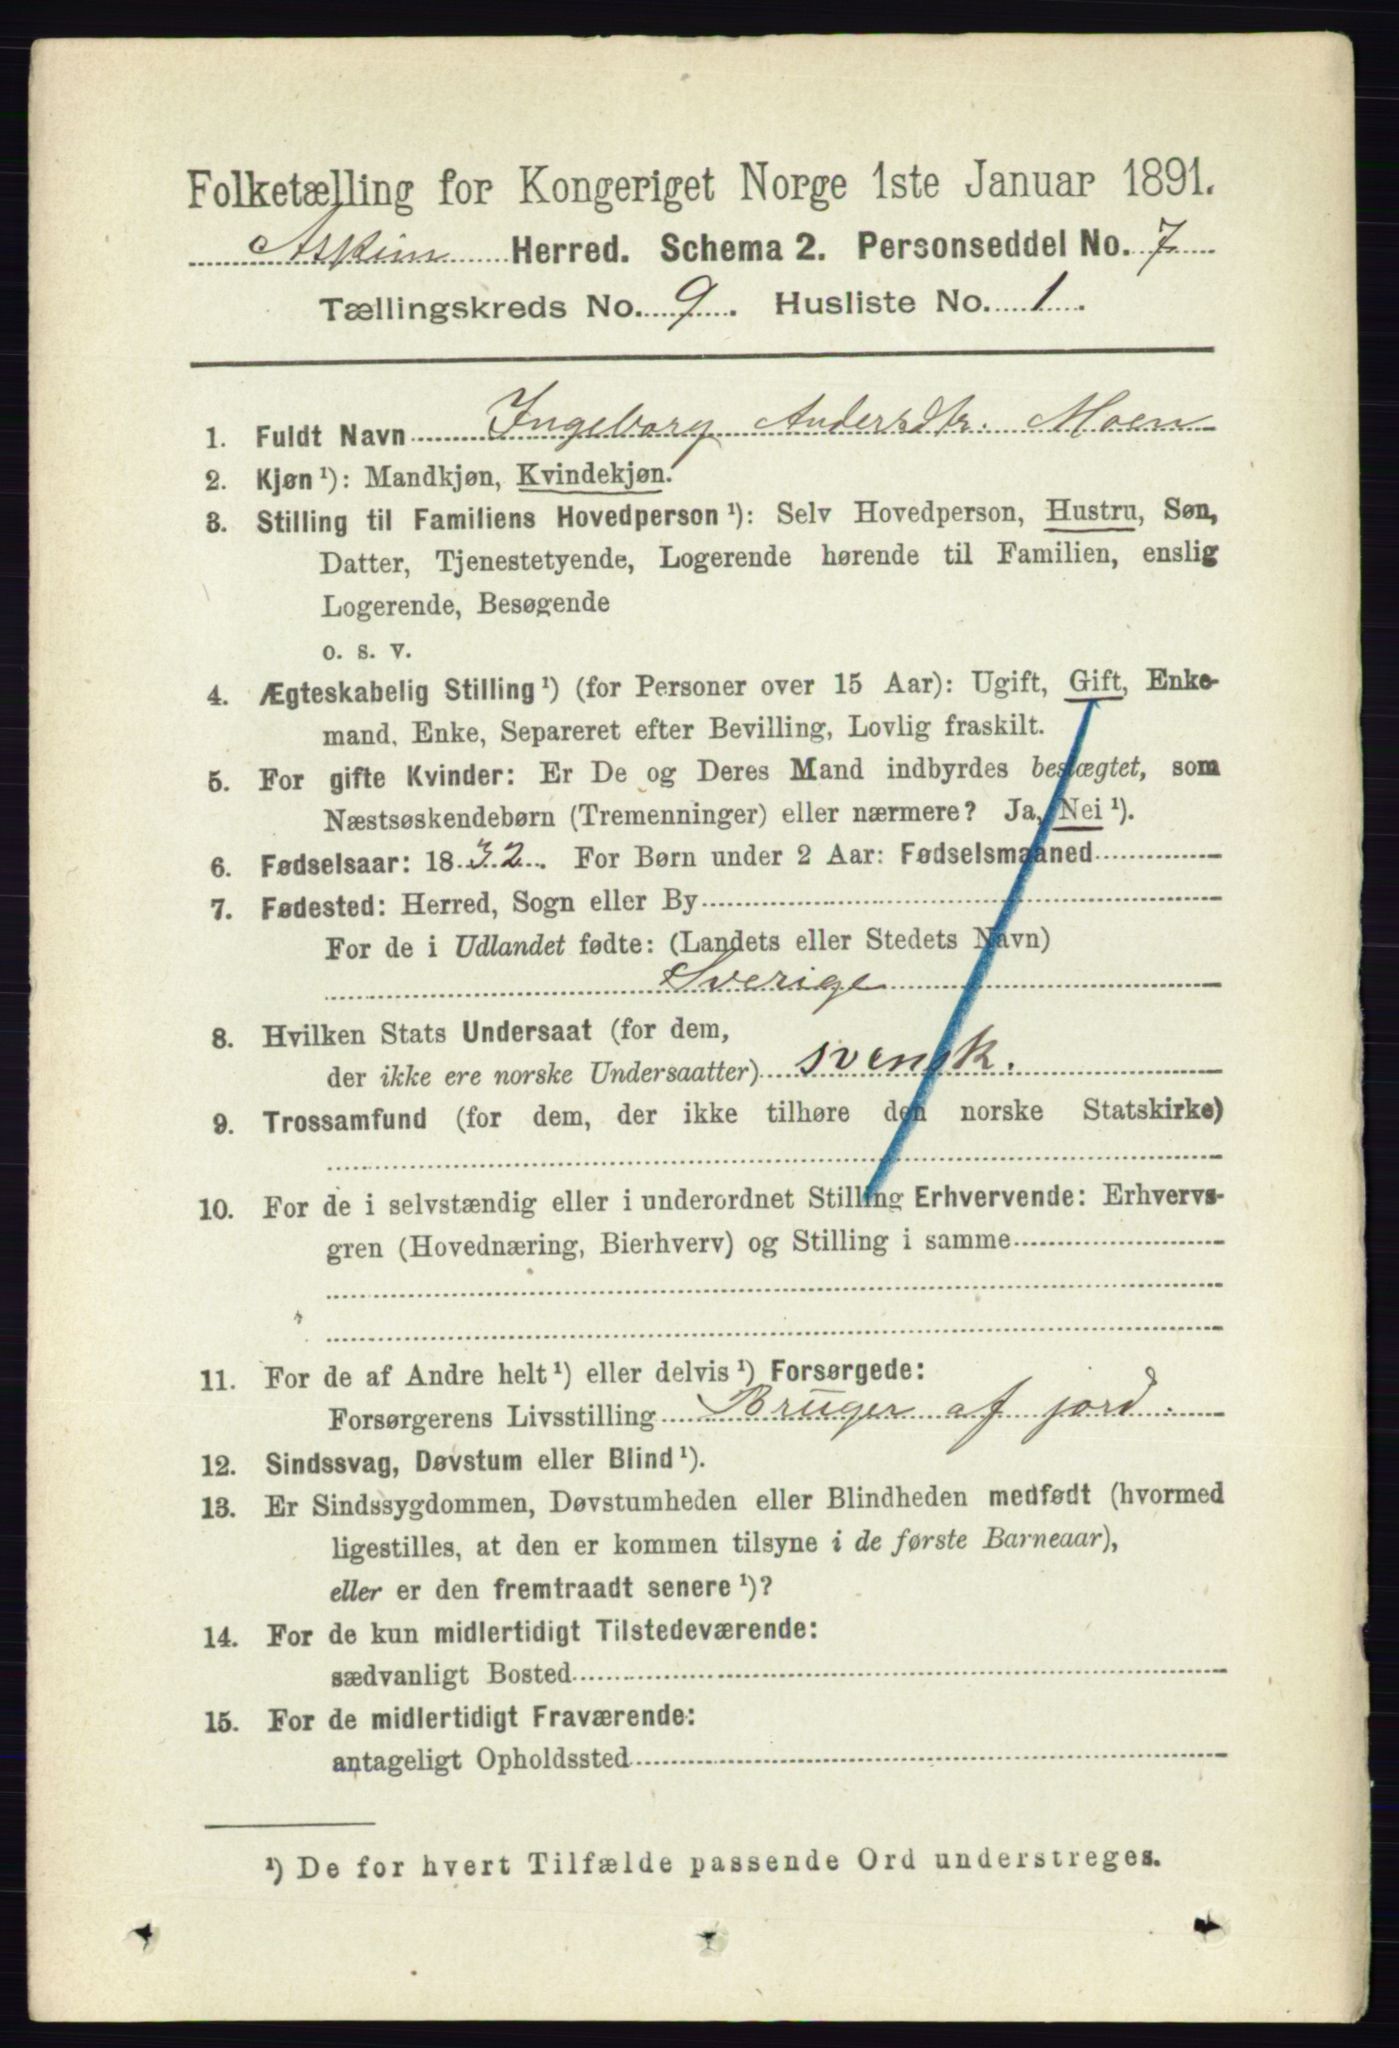 Folketælling for Kongeriget Norge 1ste Januar 1891.
Askim Herred. Schema 2. Personseddel No. 7
Tællingskreds No. 9. Husliste No. 1.
1. Fuldt Navn Ingeborg Andersdtr. Moen
2. Kjøn ¹): Mandkjøn, Kvindekjøn.
3. Stilling til Familiens Hovedperson ¹): Selv Hovedperson, Hustru, Søn,
Datter, Tjenestetyende, Logerende hørende til Familien, enslig
Logerende, Besøgende
o. s. v.
4. Ægteskabelig Stilling ¹) (for Personer over 15 Aar): Ugift, Gift, Enke-
mand, Enke, Separeret efter Bevilling, Lovlig fraskilt.
5. For gifte Kvinder: Er De og Deres Mand indbyrdes beslægtet, som
Næstsøskendebørn (Tremenninger) eller nærmere? Ja, Nei ¹).
6. Fødselsaar: 1832. For Børn under 2 Aar: Fødselsmaaned
7. Fødested: Herred, Sogn eller By
For de i Udlandet fødte: (Landets eller Stedets Navn)
Sverige
8. Hvilken Stats Undersaat (for dem,
der ikke ere norske Undersaatter) svensk.
9. Trossamfund (for dem, der ikke tilhøre den norske Statskirke)
10. For de i selvstændig eller i underordnet Stilling Erhvervende: Erhvervs-
gren (Hovednæring, Bierhverv) og Stilling i samme
11. For de af Andre helt ¹) eller delvis ¹) Forsørgede:
Forsørgerens Livsstilling Bruger af jord.
12. Sindssvag, Døvstum eller Blind ¹).
13. Er Sindssygdommen, Døvstumheden eller Blindheden medfødt (hvormed
ligestilles, at den er kommen tilsyne i de første Barneaar),
eller er den fremtraadt senere ¹)?
14. For de kun midlertidigt Tilstedeværende:
sædvanligt Bosted
15. For de midlertidigt Fraværende:
antageligt Opholdssted
¹) De for hvert Tilfælde passende Ord understreges.